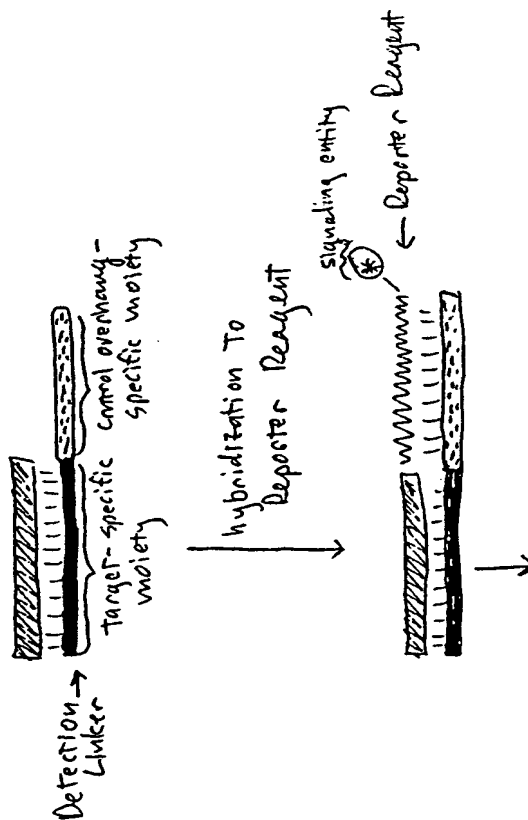 Detection →
Linker
target-specific
moiety
control overhang-
specific moiety
hybridization to
Reporter Reagent
signaling entity
*
← Reporter Reagent